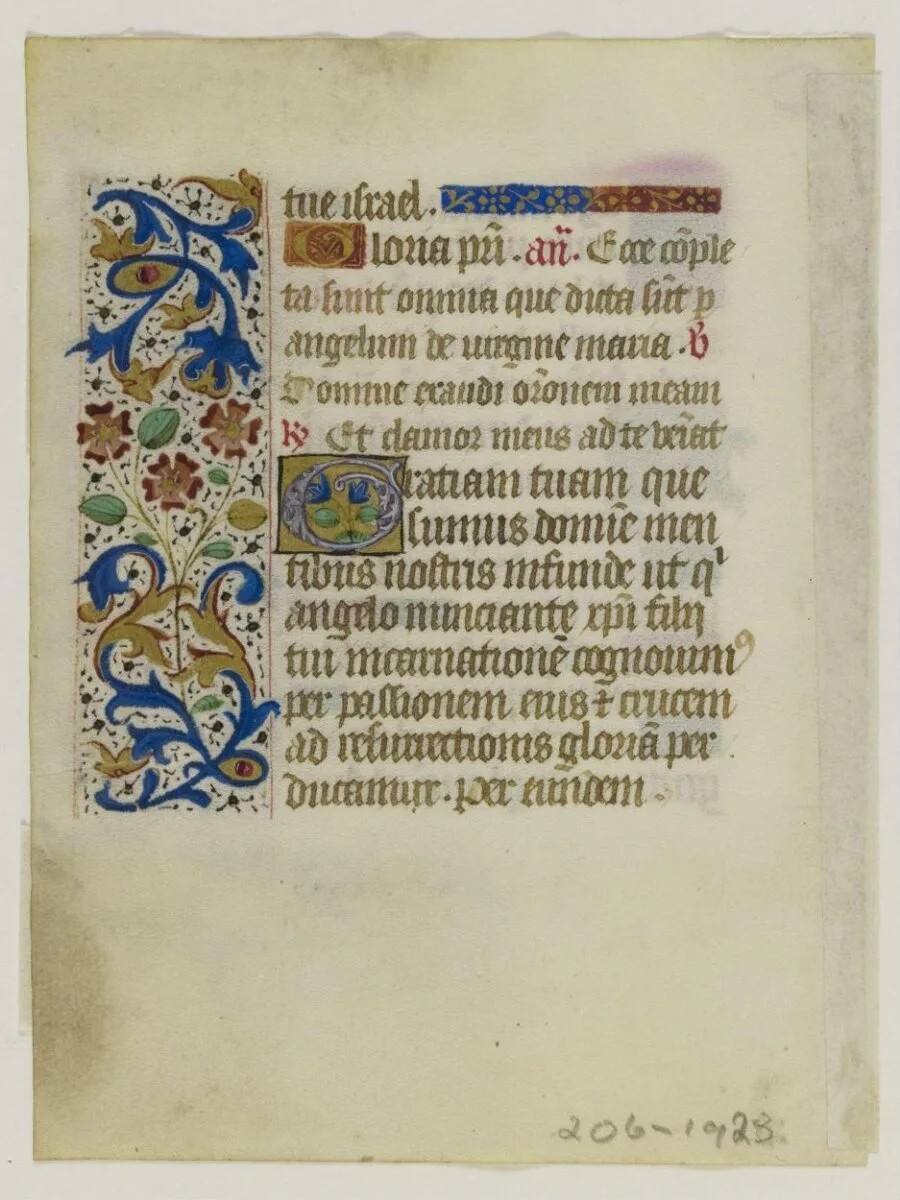 tue israel.
Gloria pr̄i. an̄. Ecce cōple
ta sunt omnia que dicta sūt p
angelum de uirgine maria. v̄
Domine exaudi or̄onem meam
℟ Et clamor meus ad te ven̄iat
Gratiam tuam que
sumus domīe men
tibus nostris infunde ut qⁱ
angelo nunciante xp̄i filii
tui incarnationē cognouimꝰ
per passionem eius ⁊ crucem
ad resurrectionis gloriā per
ducamur. Per eūndem.
206-1923